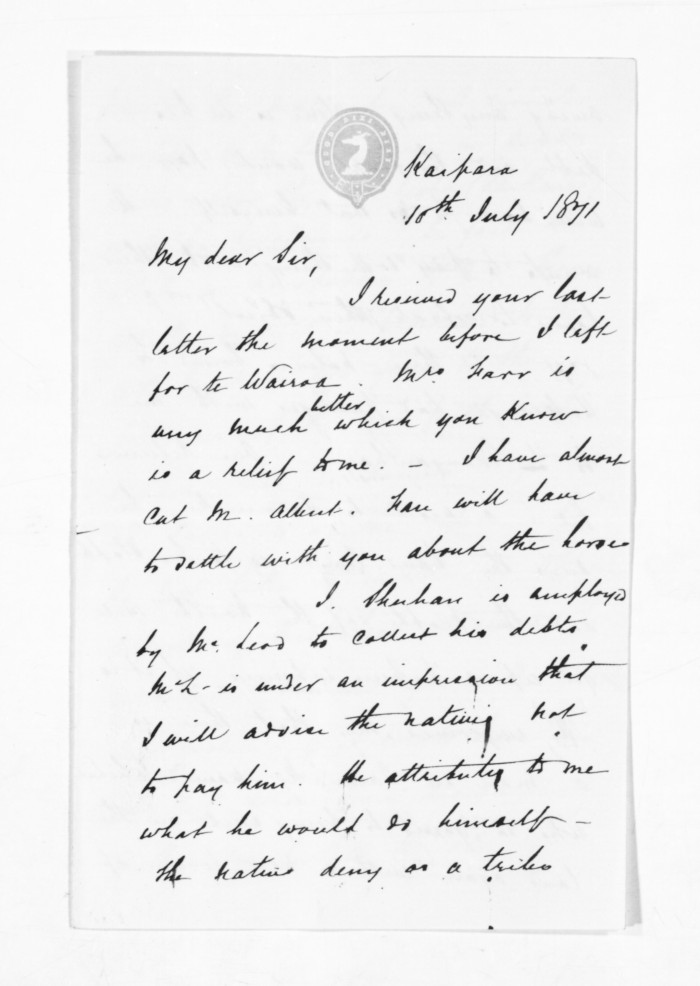 Kaipara
10th July 1871
My dear Sir,
I received your last
letter the moment before I left
for te Wairoa. Mrs Farr is
very much better which you know
is a relief to me. – I have almost
cut M. Albert. Farr will have
to settle with you about the horse
J. Sheehan is employed
by Mc Leod to collect his debts.
McL– is under an impression that
I will advise the natives not
to pay him. He attributes to me
what he would do himself –
the natives deny as a tribe